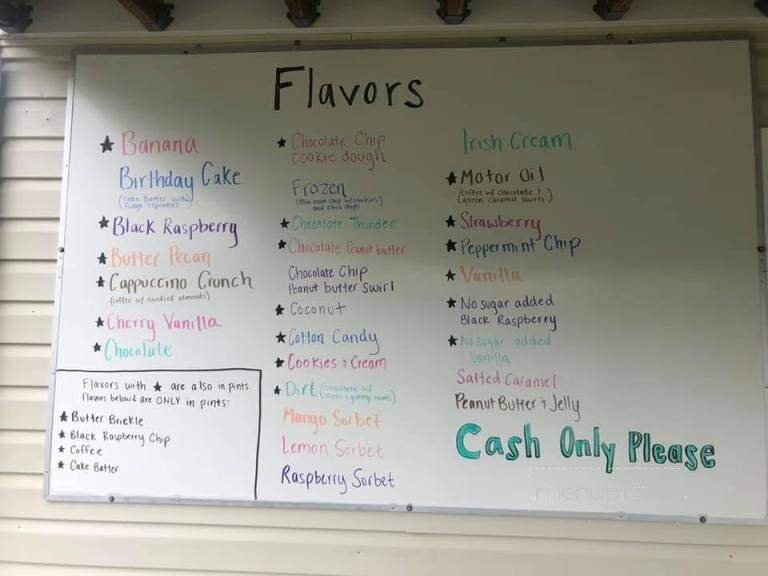 Flavors
★ Banana
Birthday Cake
(cake batter with
fudge + sprinkles)
★ Black Raspberry
★ Butter Pecan
★ Cappuccino Crunch
(coffee w/ candied almonds)
★ Cherry Vanilla
★ Chocolate
Flavors with ★ are also in pints.
Flavors below are ONLY in pints:
★ Butter Brickle
★ Black Raspberry Chip
★ Coffee
★ Cake Batter
★ Chocolate Chip
cookie dough
Frozen
(Blue moon chip w/cookies
and choc chips)
★ Chocolate Thunder
★ Chocolate Peanut butter
Chocolate Chip
Peanut butter swirl
★ Coconut
★ Cotton Candy
★ Cookies + Cream
★ Dirt (chocolate w/
gummy worms)
Mango Sorbet
Lemon Sorbet
Raspberry Sorbet
Irish Cream
★ Motor Oil
(coffee w/ chocolate +
green caramel swirls)
★ Strawberry
★ Peppermint Chip
★ Vanilla
★ No sugar added
Black Raspberry
★ No sugar added
Vanilla
Salted Caramel
Peanut Butter + Jelly
Cash Only Please